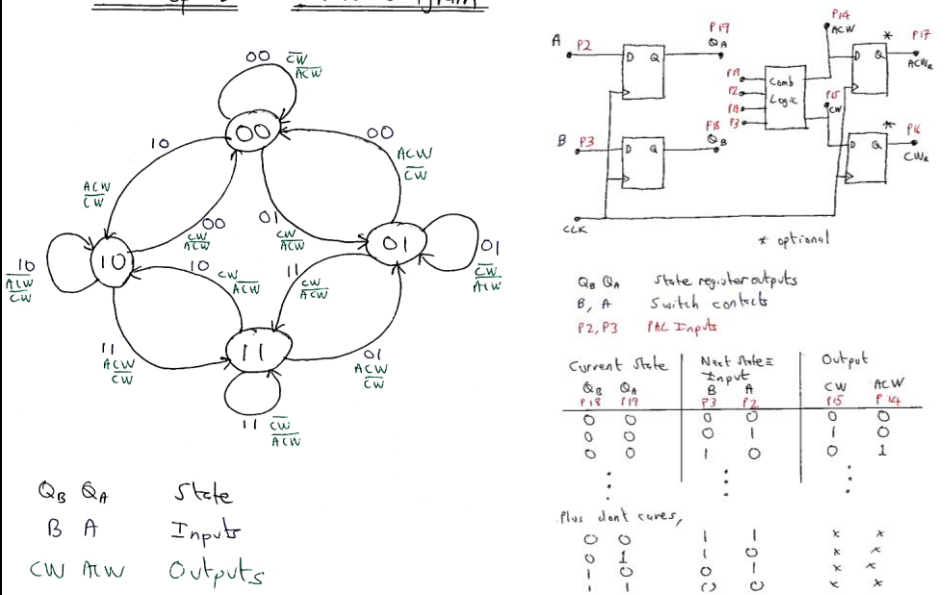 00
CW
ACW
00
10
00
ACW
CW
ACW
CW
00
CW
ACW
01
CW
ACW
01
01
CW
ACW
10
10
ACW
CW
10
CW
ACW
11
CW
ACW
11
ACW
CW
11
01
ACW
CW
11
CW
ACW
QB QA State
B A Inputs
CW ACW Outputs
A P2
D Q
P19
QA
B P3
D Q
P18
QB
CLK
P19
P2
P18
P3
Comb
Logic
P14
ACW
P15
CW
*
D Q
P17
ACWR
*
D Q
P16
CWR
* optional
QB QA State register outputs
B, A Switch contacts
P2, P3 PAL Inputs
Current State Next State ≡ Output
Input
QB QA B A CW ACW
P18 P19 P3 P2 P15 P14
0 0 0 0 0 0
0 0 0 1 1 0
0 0 1 0 0 1
Plus dont cares,
0 0 1 1 x x
0 1 1 0 x x
1 0 0 1 x x
1 1 0 0 x x